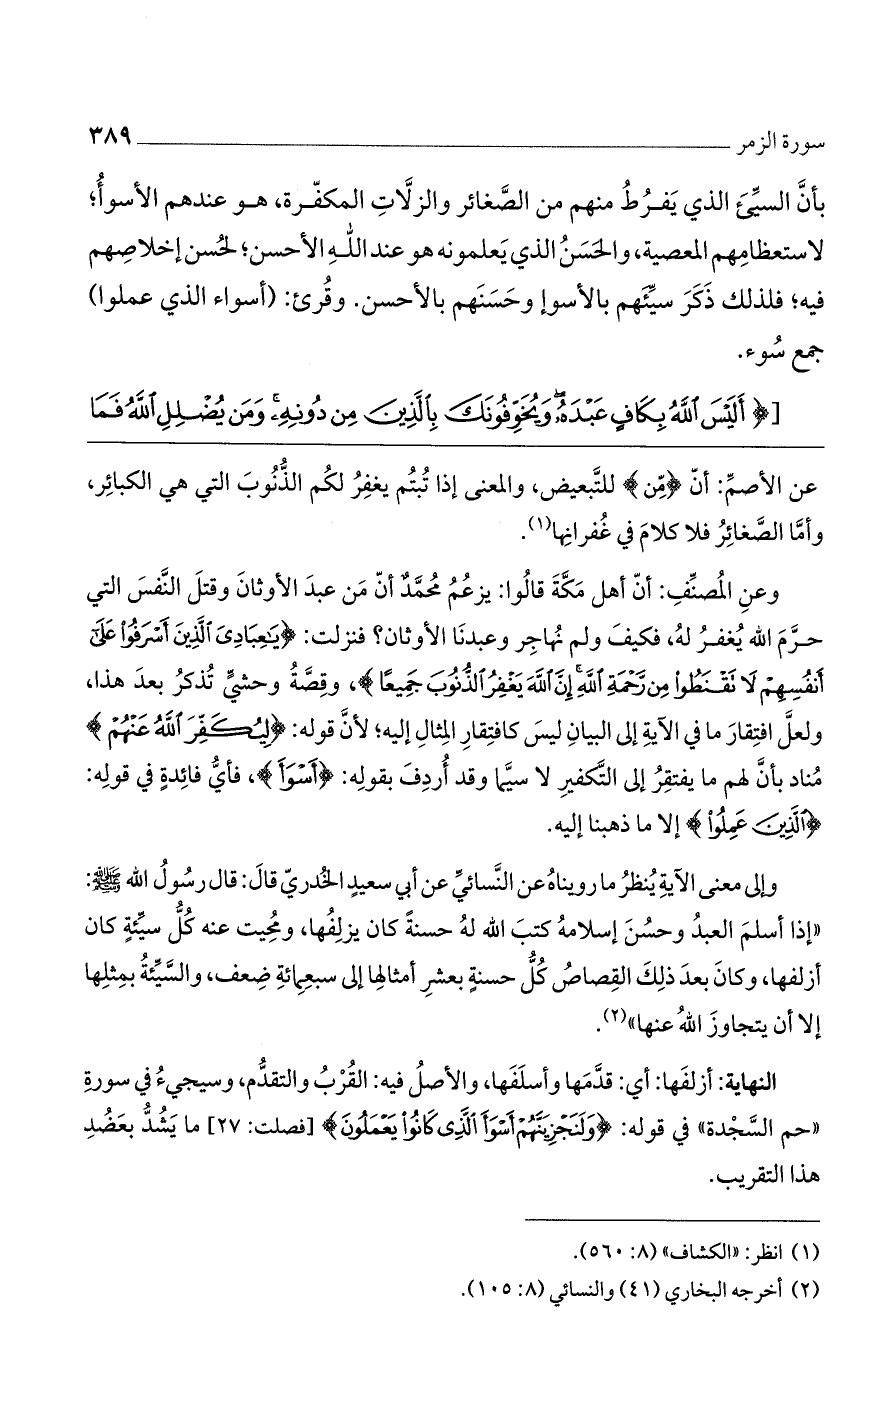 سورة الزمر ٣٨٩
بأنَّ السيِّئَ الذي يَفـرُطُ منهم من الصَّغائر والزلَّاتِ المكفّـرة، هـو عندهم الأسوأُ؛
لاستعظامِهم المعصية، والحَسَنُ الذي يَعلمونه هو عند اللهِ الأحسن؛ لحُسن إخلاصِهم
فيه؛ فلذلك ذَكَرَ سيِّئَهم بالأسوإِ وحَسَنَهم بالأحسن. وقُرئ: (أسواء الذي عملوا)
جمع سُوء.
[﴿ أَلَيْسَ ٱللَّهُ بِكَافٍ عَبْدَهُۥ ۖ وَيُخَوِّفُونَكَ بِٱلَّذِينَ مِن دُونِهِۦ ۚ وَمَن يُضْـلِلِ ٱللَّهُ فَمَا
عن الأصمِّ: أنّ ﴿مِّن﴾ للتَّبعيض، والمعنى إذا تُبتُم يغفِرُ لكُم الذُّنُوبَ التي هي الكبائِر،
وأمَّا الصَّغائِرُ فلا كلامَ في غُفرانِها(١).
وعنِ المُصنِّفِ: أنّ أهل مكَّةَ قالُوا: يزعُمُ مُحمَّدٌ أنّ مَن عبدَ الأوثانَ وقتلَ النَّفسَ التي
حرَّمَ الله يُغفـرُ لهُ، فكيفَ ولم نُهاجِر وعبدنَا الأوثان؟ فنزلت: ﴿يَٰعِبَادِىَ ٱلَّذِينَ أَسْرَفُوا۟ عَلَىٰٓ
أَنفُسِهِمْ لَا نَقْـنَطُوا۟ مِن رَّحْمَةِ ٱللَّهِ ۚ إِنَّ ٱللَّهَ يَغْفِرُ ٱلذُّنُوبَ جَمِيعًا﴾، وقِصَّةُ وحشيٍّ تُذكرُ بعدَ هذا،
ولعلَّ افتِقارَ ما في الآيةِ إلى البيانِ ليسَ كافتِقارِ المِثالِ إليه؛ لأنَّ قوله: ﴿لِيُكَـفِّرَ ٱللَّهُ عَنْهُمْ﴾
مُناد بأنَّ لهم ما يفتقِرُ إلى التَّكفيرِ لا سيَّما وقد أُردِفَ بقولِه: ﴿أَسْوَأَ﴾، فأيُّ فائِدةٍ في قولِه:
﴿ٱلَّذِينَ عَمِلُوا۟﴾ إلا ما ذهبنا إليه.
وإلى معنى الآيةِ يُنظرُ ما رويناهُ عن النَّسائيِّ عن أبي سعيدٍ الخُدريّ قالَ: قال رسُولُ الله ﷺ:
«إذا أسلمَ العبدُ وحسُنَ إسلامهُ كتبَ الله لهُ حسنةً كان يزلِفُها، ومُحِيت عنه كُلُّ سيِّئةٍ كان
أزلفها، وكانَ بعدَ ذلِكَ القِصاصُ كُلُّ حسنةٍ بعشرِ أمثالِها إلى سبعِمائةِ ضِعف، والسَّيِّئةُ بمِثلِها
إلا أن يتجاوزَ اللهُ عنها»(٢).
النهاية: أزلفَها: أي: قدَّمَها وأسلَفَها، والأصلُ فيه: القُرْبُ والتقدُّم، وسيجيءُ في سورةِ
«حم السَّجْدة» في قوله: ﴿وَلَنَجْزِيَنَّهُمْ أَسْوَأَ ٱلَّذِى كَانُوا۟ يَعْمَلُونَ﴾ [فصلت: ٢٧] ما يَشُدُّ بعَضُدِ
هذا التقريب.
(١) انظر: «الكشاف» (٨: ٥٦٠).
(٢) أخرجه البخاري (٤١) والنسائي (٨: ١٠٥).